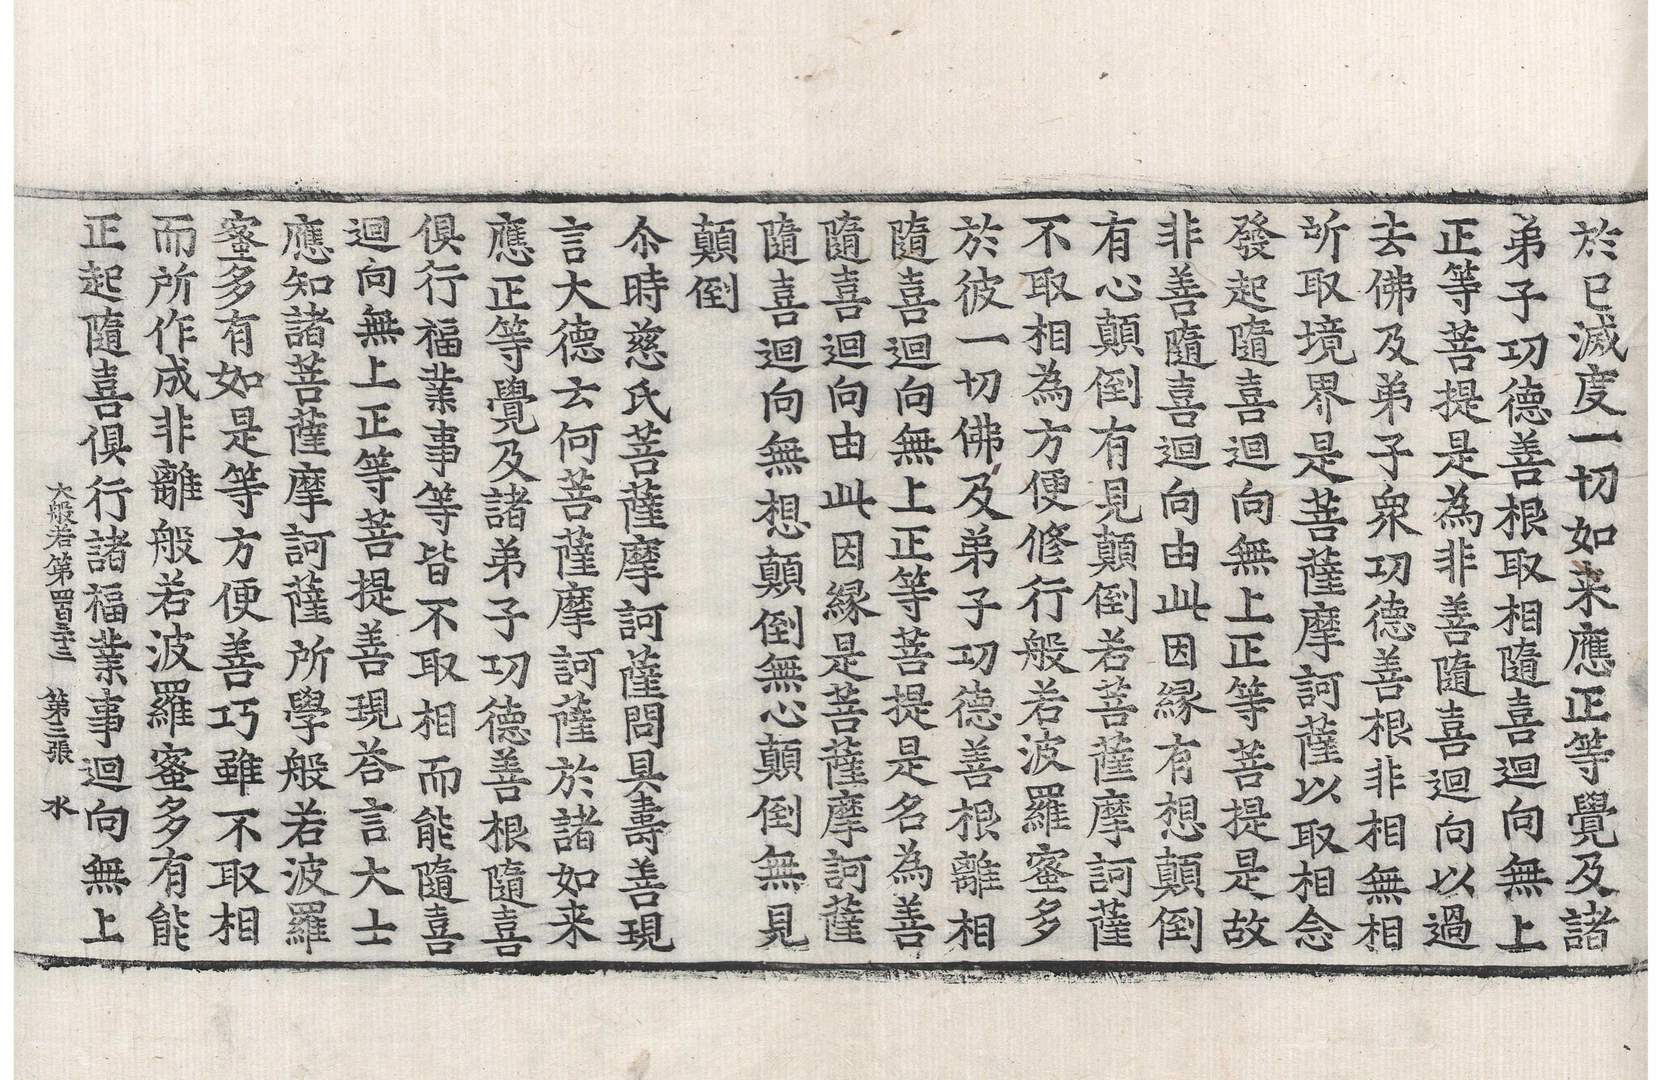 於已滅度一切如来應正等覺及諸
弟子功德善根取相隨喜迴向無上
正等菩提是為非善隨喜迴向以過
去佛及弟子衆功德善根非相無相
所取境界是菩薩摩訶薩以取相念
發起隨喜迴向無上正等菩提是故
非善隨喜迴向由此因緣有想顛倒
有心顛倒有見顛倒若菩薩摩訶薩
不取相為方便修行般若波羅蜜多
於彼一切佛及弟子功德善根離相
隨喜迴向無上正等菩提是名為善
隨喜迴向由此因緣是菩薩摩訶薩
隨喜迴向無想顛倒無心顛倒無見
顛倒
尒時慈氏菩薩摩訶薩問具壽善現
言大德云何菩薩摩訶薩於諸如来
應正等覺及諸弟子功德善根隨喜
俱行福業事等皆不取相而能隨喜
迴向無上正等菩提善現荅言大士
應知諸菩薩摩訶薩所學般若波羅
蜜多有如是等方便善巧雖不取相
而所作成非離般若波羅蜜多有能
正起隨喜俱行諸福業事迴向無上
大般若第四百三十三 第三張 水